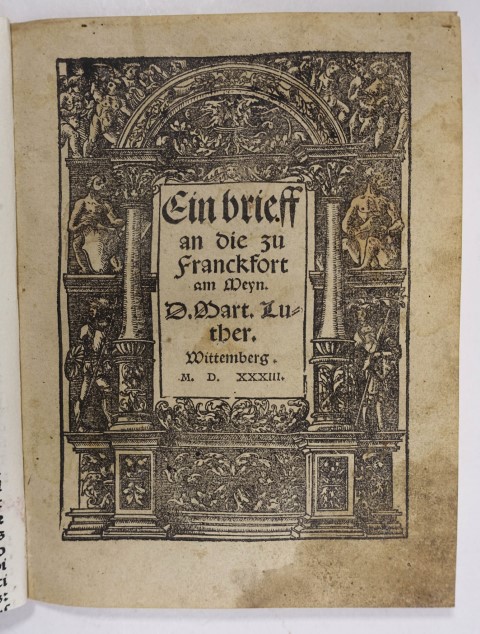 Ein brieff
an die zu
Franckfort
am Meyn.
D. Mart. Lu-
ther.
Wittemberg.
M. D. XXXIII.